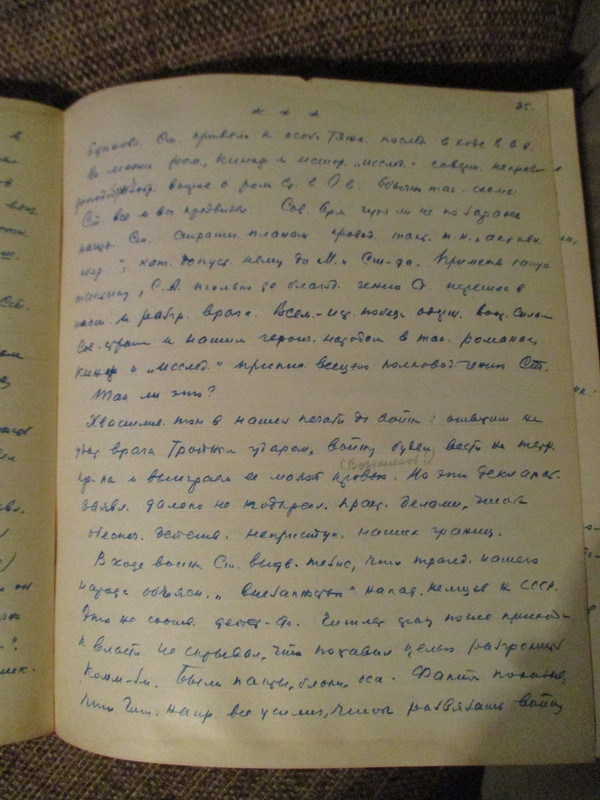 * * *
35.
Единовл. Ст. привело к особ. тяжк. послед. в ходе в О.В.
во многих ром., кинок. и истор. „исслед." совсем неправ
вопрос о роли Ст. в О.В. Обычно так. схема:
Ст. все и вся предвидел. Сов. Арм чуть ли не по заранее
Ст. стратег. планам провод. такт. т.н. „активн.
обор.", кот. допуст. немц. до М. и Ст-да. Применив такую
тактику, С.А. только де благод. гению Ст. перешла в
наст. и разбр. врага. Всем.-ист. победа одерж. воор. силами
Сов. страны и нашим героич. народом в так. романах,
кинок. и „исслед." припис. всецело полковод. гению Ст.
Так ли это?
Хвастлив. тон в нашей печати до войны: ответим на
удар врага тройным ударом, войну будем вести на терр.
пр-ка и выиграем ее малой кровью. Но эти декларат.
(Ворошилов)
заявл. далеко не подкрепл. практ. делами, чтоб
обеспеч. действ. неприступн. наших границ.
В ходе войны Ст. выдв. тезис, что трагед. нашего
народа объясн. „внезапностью" напад. немцев на СССР.
Это не соотв. действ-ти. Гитлер сразу после прихода
к власти не скрывал, что поставил целью разгромить
комм-зм. Были пакты, блоки, оси. Факты показыв.,
что Гит. напр. все усилия, чтоб развязать войну